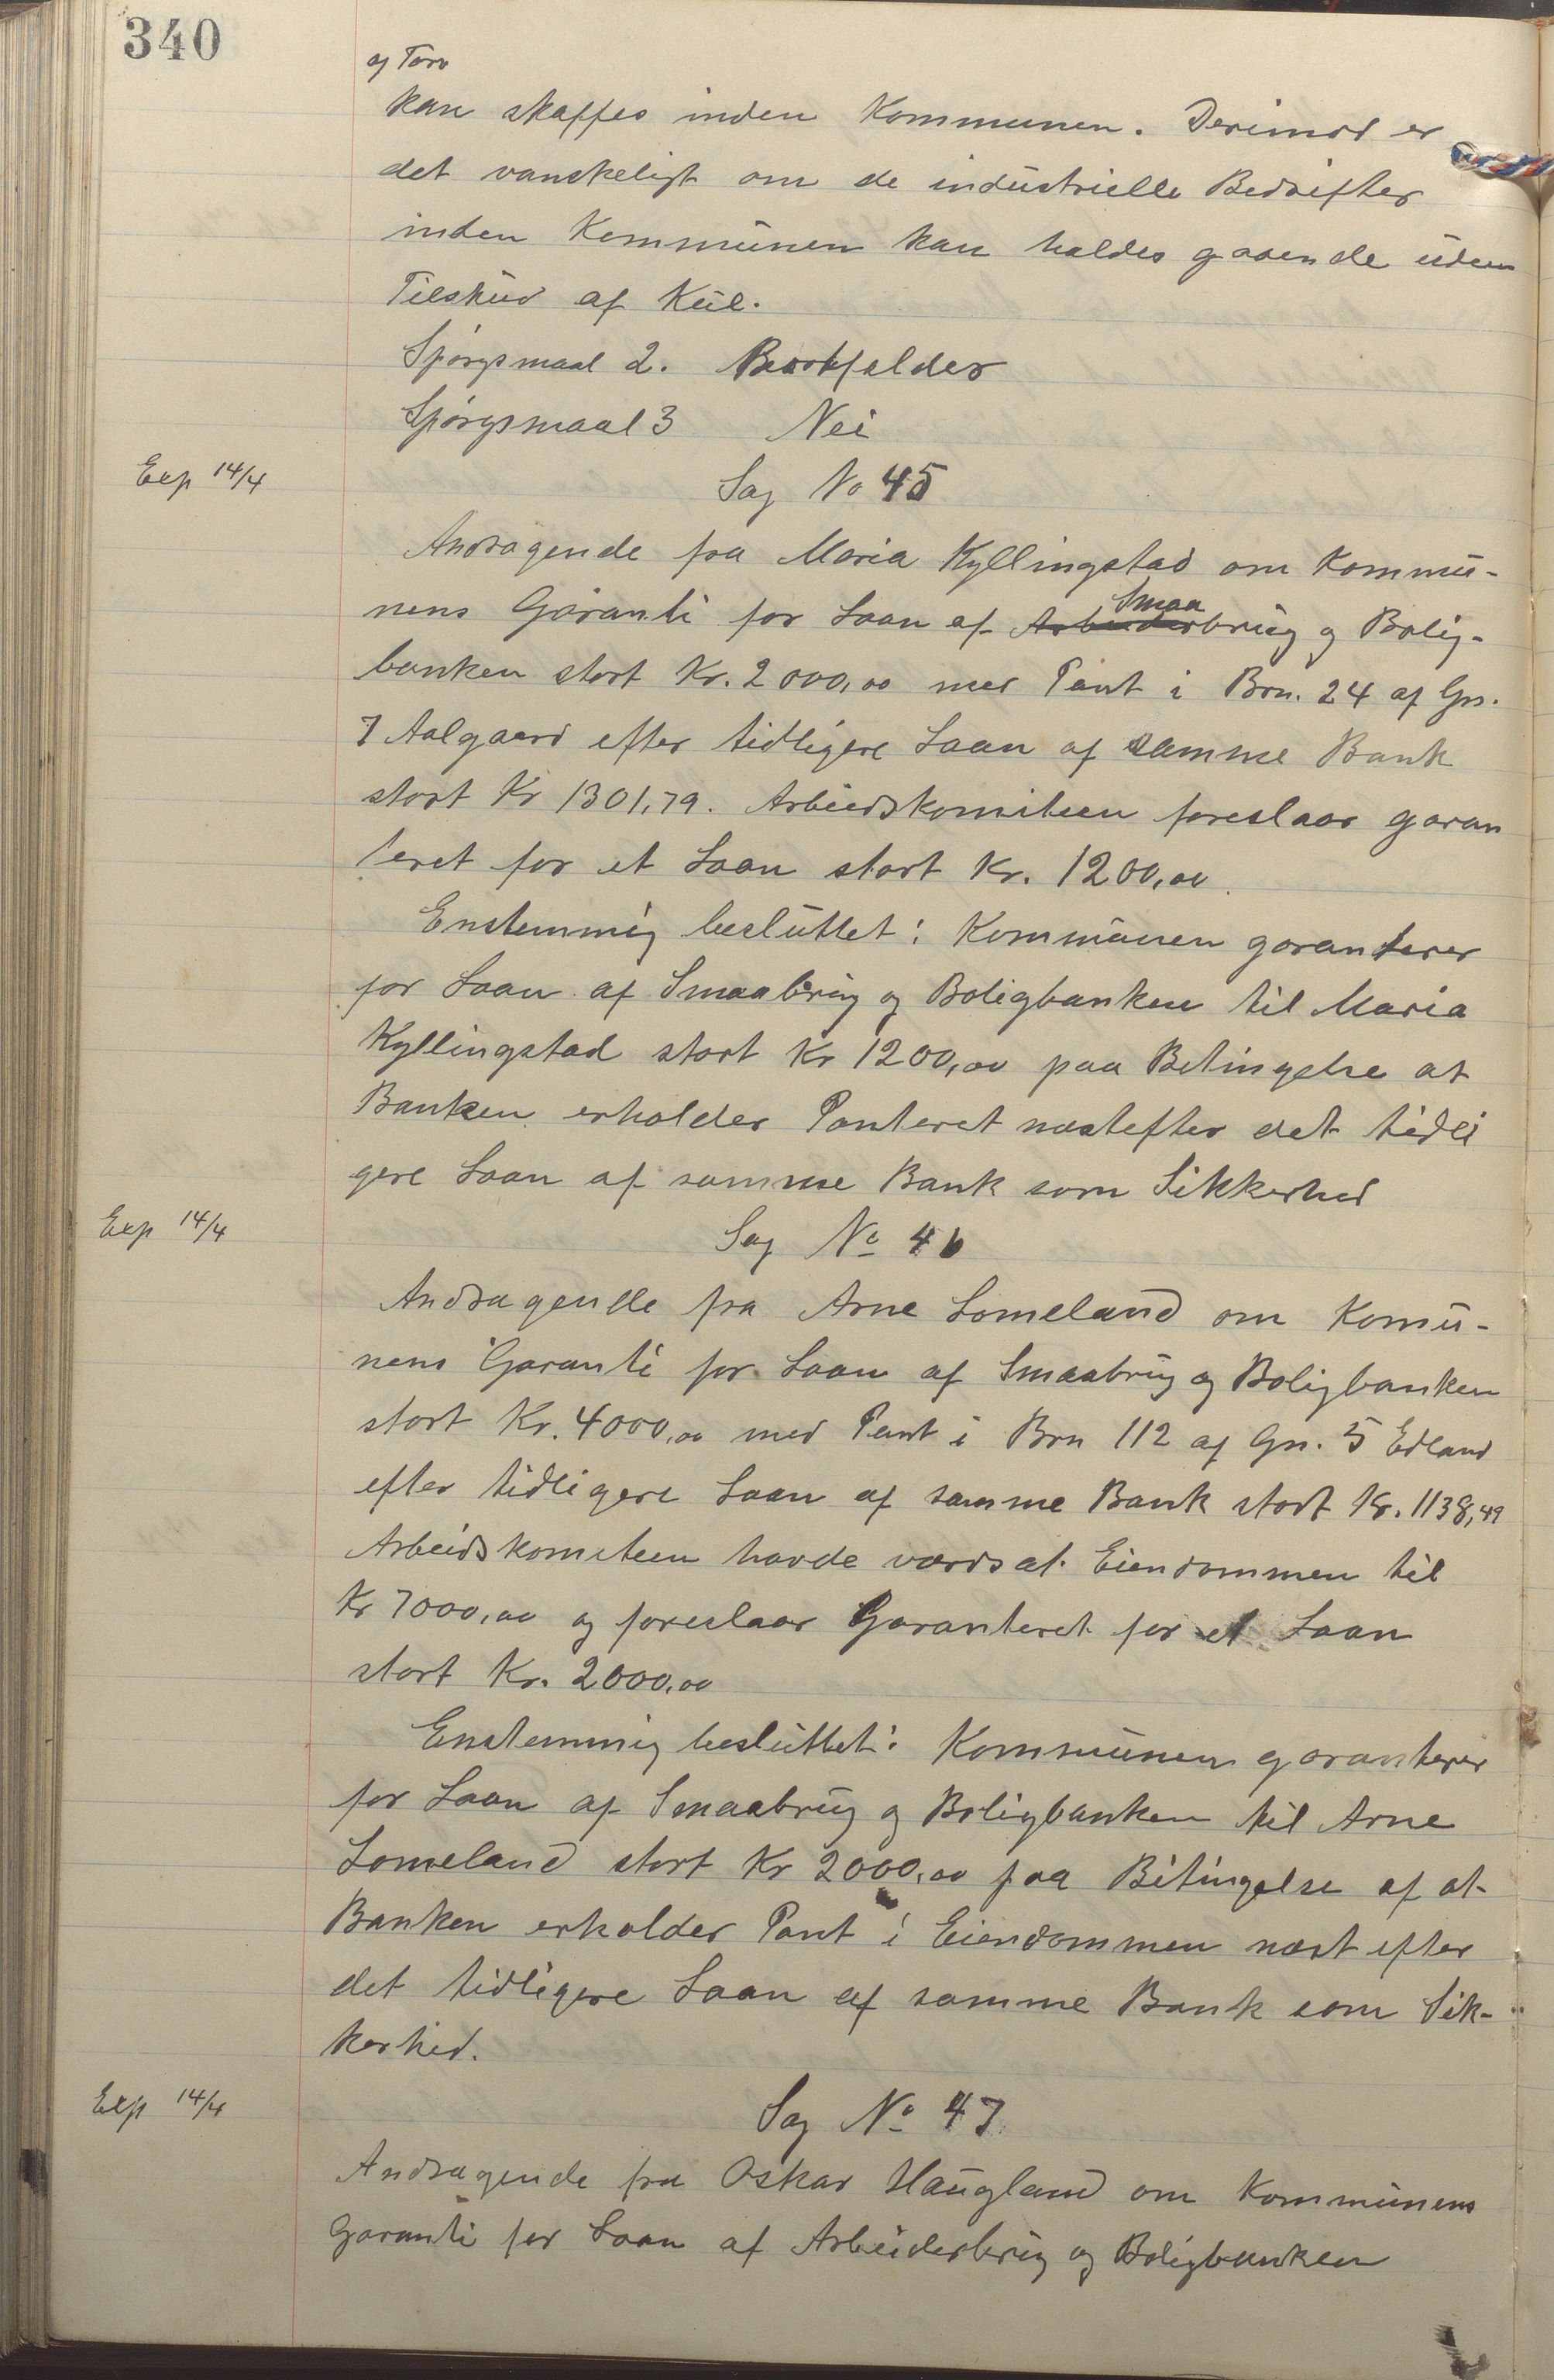 340
og Torv
kan skaffes inden Kommunen. Derimod er
det vanskeligt om de industrielle Bedrifter
inden Kommunen kan holdes gaaende uden
Tilskud af Kul.
Spørgsmaal 2. Bortfalder
Spørgsmaal 3 Nei
Exp 14/4
Sag No 45
Andragende fra Maria Kyllingstad om Kommu-
nens Garanti for Laan af Arbeiderbrug Smaa og Bolig-
banken stort Kr. 2000,00 med Pant i Brn. 24 af Gn.
7 Aalgaard efter tidligere Laan af samme Bank
stort Kr 1301,79. Arbeidskomiteen foreslaar garan
teret for et Laan stort Kr. 1200,00.
Enstemmig besluttet: Kommunen garanterer
for Laan af Smaabrug og Boligbanken til Maria
Kyllingstad stort Kr 1200,00 paa Betingelse at
Banken erholder Panteret næstefter det tidli
gere Laan af samme Bank som Sikkerhed
Exp 14/4
Sag No 46
Andragende fra Arne Lomeland om Komu-
nens Garanti for Laan af Smaabrug og Boligbanken
stort Kr. 4000,00 med Pant i Brn 112 af Gn. 5 Edland
efter tidligere Laan af samme Bank stort Kr. 1138,49
Arbeidskomiteen havde værdsat Eiendommen til
Kr 7000,00 og foreslaar Garanteret for et Laan
stort Kr. 2000,00
Enstemmig besluttet: Kommunen garanterer
for Laan af Smaabrug og Boligbanken til Arne
Lomeland stort Kr 2000,00 paa Betingelse af at
Banken erholder Pant i Eiendommen næst efter
det tidligere Laan af samme Bank som Sik-
kerhed.
Exp 14/4
Sag No 47
Andragende fra Oskar Haugland om Kommunens
Garanti for Laan af Arbeiderbrug og Boligbanken